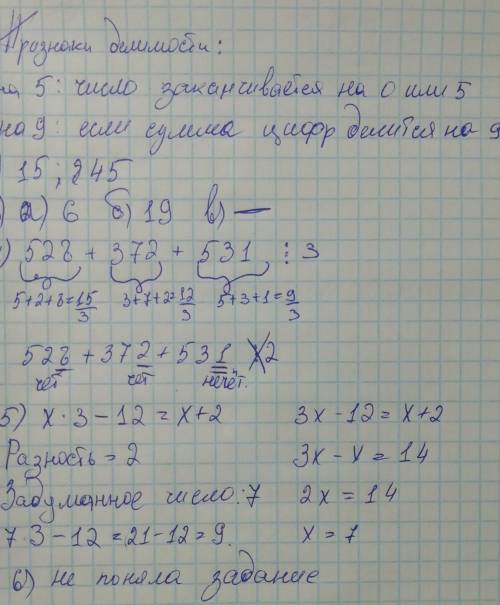 Признаки делимости:
на 5: число заканчивается на 0 или 5
на 9: если сумма цифр делится на 9
) 15; 245
) а) 6 б) 19 в) —
) 528 + 372 + 531 ⋮ 3
5+2+8=15/3 3+7+2=12/3 5+3+1=9/3
528 + 372 + 531 ⋮̸ 2
чёт чет нечёт.
5) x·3-12=x+2
Разность = 2
Задуманное число: 7
7·3-12=21-12=9.
3x-12=x+2
3x-x=14
2x=14
x=7
6) не поняла задание